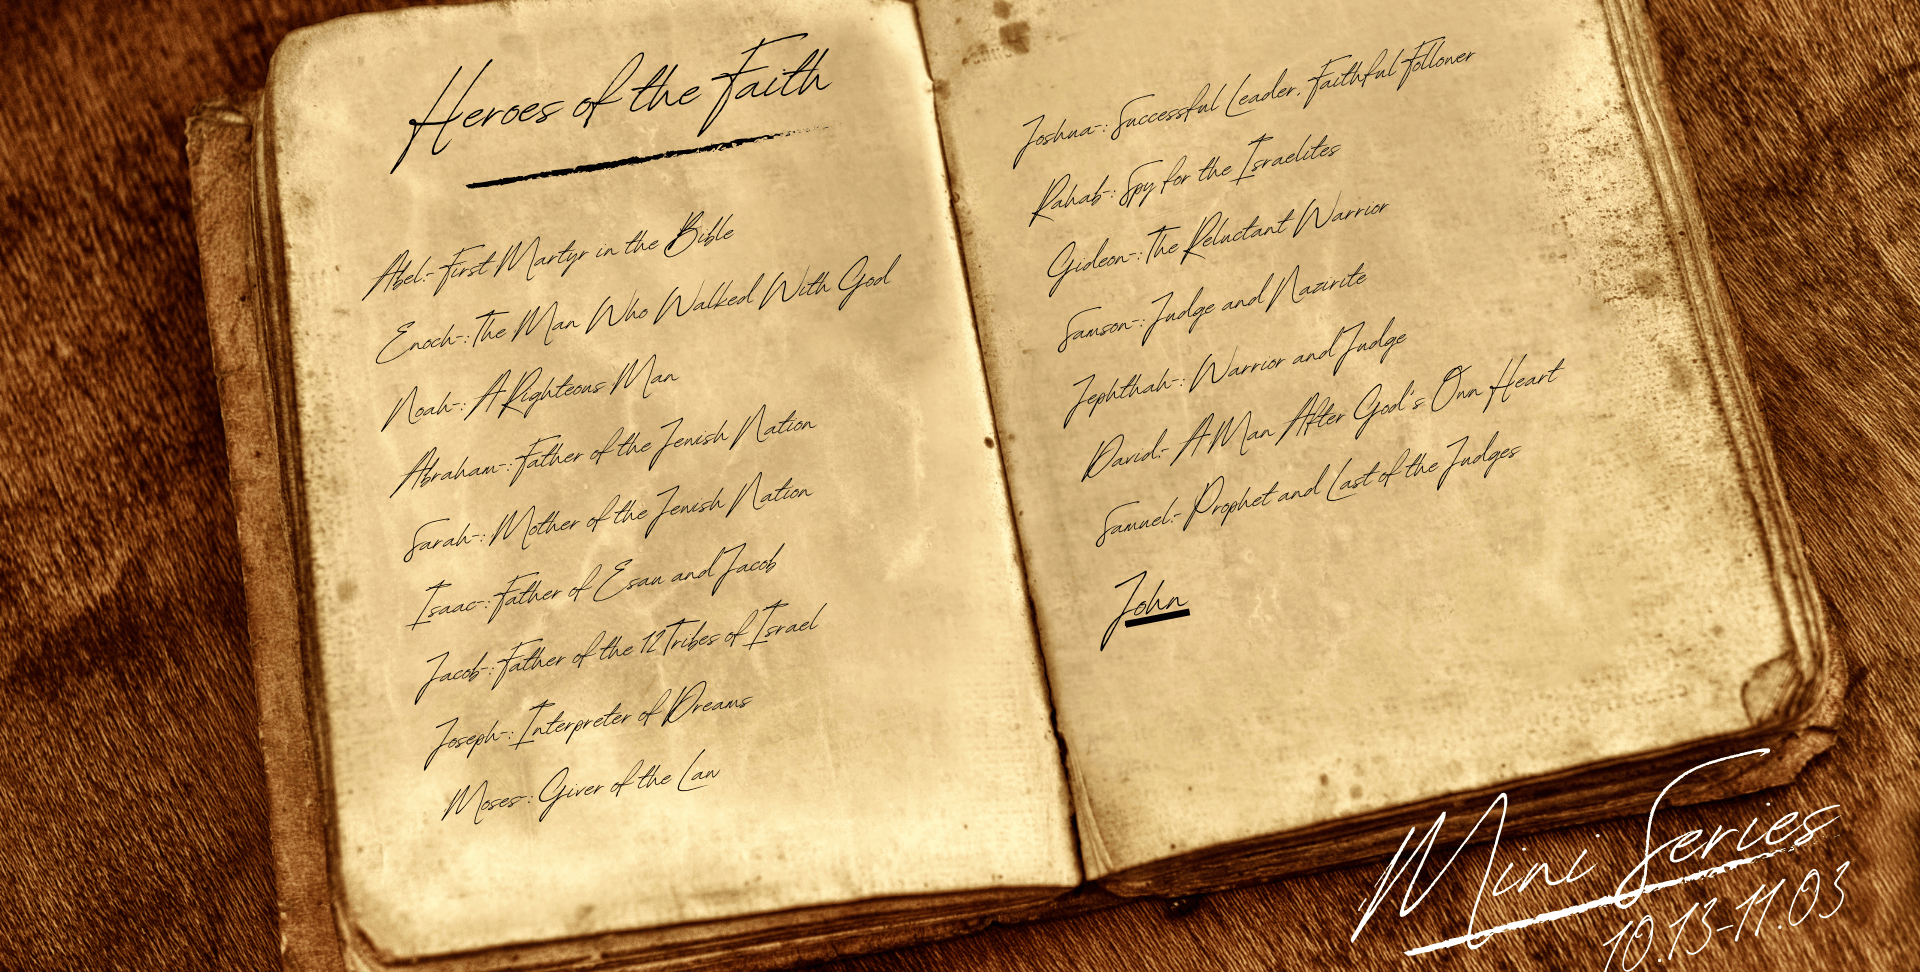 Heroes of the Faith
Abel:- First Martyr in the Bible
Enoch-: The Man Who Walked With God
Noah-: A Righteous Man
Abraham-: Father of the Jewish Nation
Sarah-: Mother of the Jewish Nation
Isaac-: Father of Esau and Jacob
Jacob-: Father of the 12 Tribes of Israel
Joseph-: Interpreter of Dreams
Moses-: Giver of the Law
Joshua-: Successful Leader, Faithful Follower
Rahab-: Spy for the Israelites
Gideon-: The Reluctant Warrior
Samson-: Judge and Nazirite
Jephthah-: Warrior and Judge
David:- A Man After God's Own Heart
Samuel:- Prophet and Last of the Judges
John
Mini Series
10.13-11.03